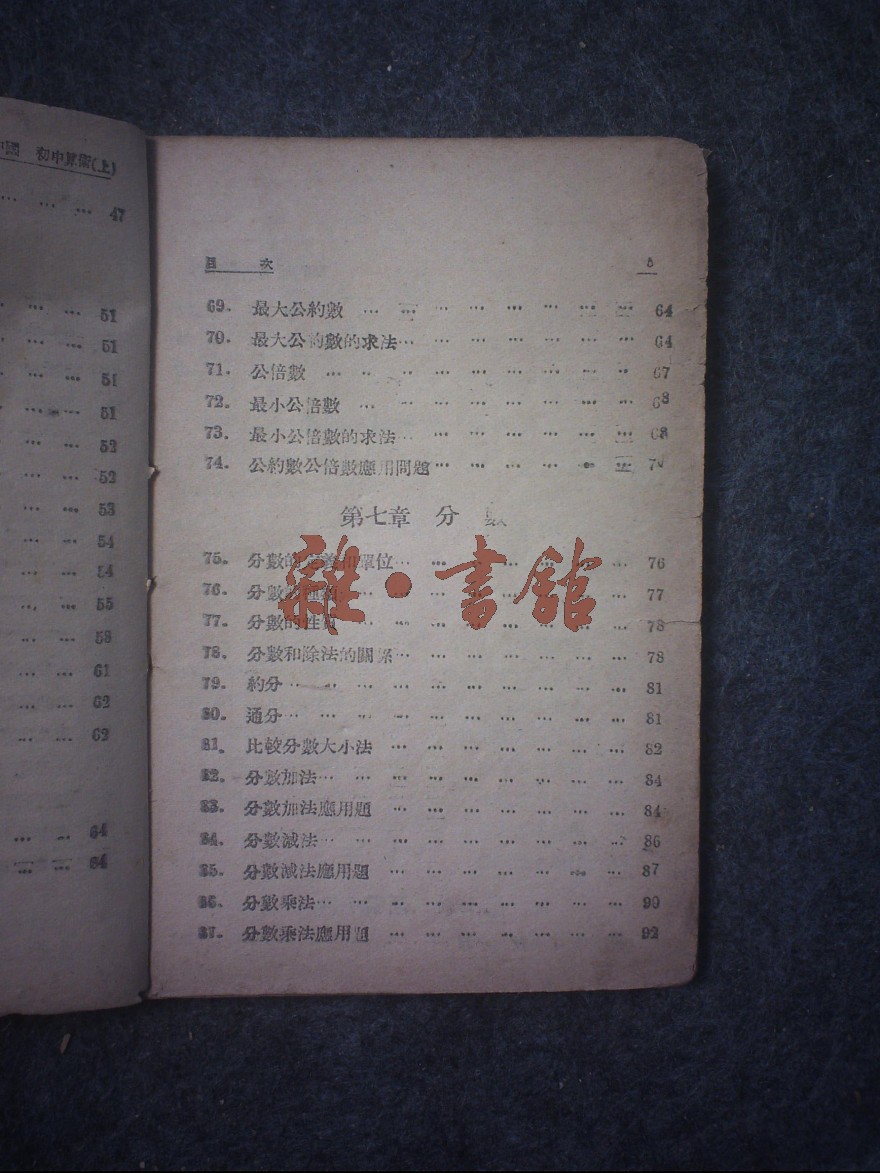 中國 初中算術(上)
47
51
51
51
51
52
52
53
54
54
55
58
61
62
62
64
64
目 次 5
69. 最大公約數 … … … … … … … … 64
70. 最大公約數的求法… … … … … … … 64
71. 公倍數 … … … … … … … … … 67
72. 最小公倍數 … … … … … … … … 68
73. 最小公倍數的求法… … … … … … … 68
74. 公約數公倍數應用問題… … … … … … 
第七章 分 數
75. 分數的定義和單位… … … … … … … 76
76. 分數的種類… … … … … … … … 77
77. 分數的性質 … … … … … … … … 78
78. 分數和除法的關系… … … … … … … 78
79. 約分… … … … … … … … … … 81
80. 通分… … … … … … … … … … 81
81. 比較分數大小法 … … … … … … … 82
82. 分數加法… … … … … … … … … 84
83. 分數加法應用題 … … … … … … … 84
84. 分數減法… … … … … … … … … 86
85. 分數減法應用題 … … … … … … … 87
86. 分數乘法… … … … … … … … … 90
87. 分數乘法應用題 … … … … … … … 92
雜·書館